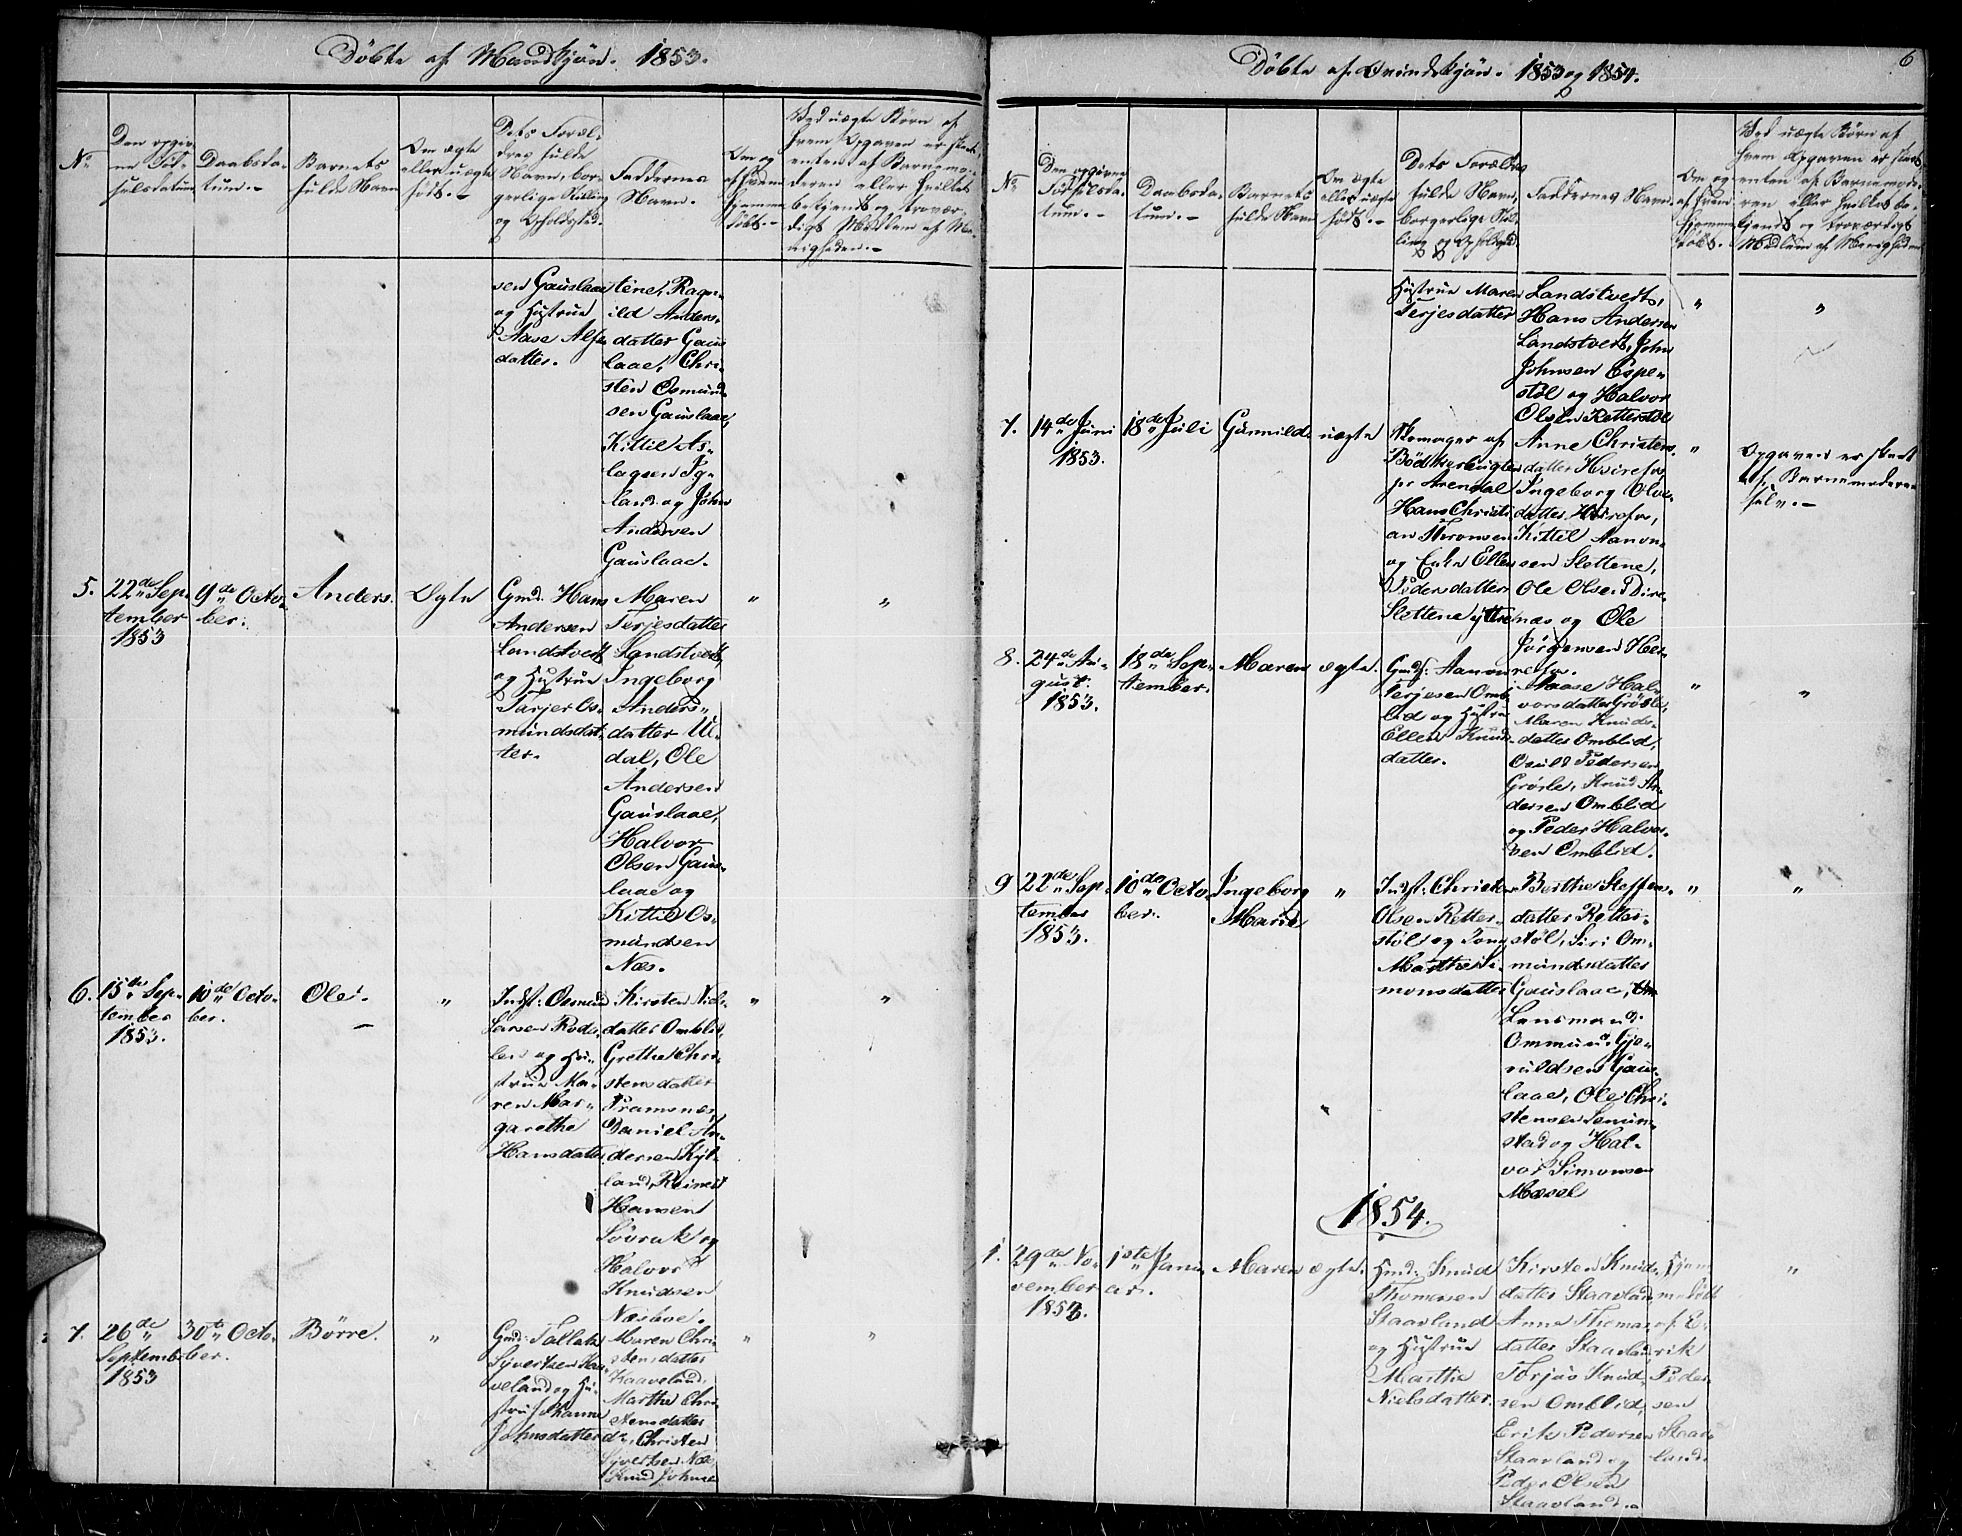 Døbte af Mandkjøn. 1853.
No
Den opgiv-
ne Fød-
selsdatum
Daabsda-
tum.-
Barnets
fulde Navn
Om ægte
eller uægte
født.-
Dets Foræl-
dres fulde
Navn, bor-
gerlige Stilling
og Opholdsted.
Faddernes
Navn.
Om og
af hvem
hjemme
døbt.-
Ved uægte Børn af
hvem Opgaven er skeet,
enten af Barnemo-
deren eller hvilket
bekjendt og trovær-
digt Medlem af Me-
nigheden.-
sen Gauslaae
og Hustrue
Aase Alfs
datter.
tene, Ragn-
ild Anders-
datter Gaus
laae, Chri-
sten Osmund
sen Gauslaae,
Kittil As-
lagsen Ig-
land og John
Andersen
Gauslaae.
5.
22de Sep-
tember
1853
9de Octo-
ber.
Anders.
Ægte
Gmd. Hans
Andersen
Landstvedt
og Hustrue
Tarjer Os-
mundsdat-
ter.
Maren
Terjesdatter
Landstvedt,
Ingeborg
Anders-
datter Ul-
dal, Ole
Andersen
Gauslaae,
Halvor
Olsen Gaus-
laae og
Kittil Os-
mundsen
Næs.
"
"
6.
15de Sep-
tember
1853.
10de Octo-
ber.
Ole.
"
Indst: Osmund
Larsen Rods-
lien og Hu-
strue Ma-
ren Mar-
garethe
Hansdatter
Kirsten Niels
datter Omblid,
Grethe Chri-
stensdatter
Framnes,
Daniel An-
dersen Kyl-
land, Reinert
Hansen
Søvrak og
Halvor
Knudsen
Næsboe.
"
"
7.
26de
September
1853
30te Octo-
ber.
Børre.
"
Gmd: Tallak
Syvertsen Kaa
veland og Hu-
stru Johanne
Johnsdatter
Maren Chri-
stensdatter
Kaaveland,
Marthe Chri
stensdatter
do, Christen
Syvertsen Næs
Knud Johnse
"
"
Døbte af Qvindekjøn. 1853 og 1854.
6
No
Den opgivne
Fødselsda-
tum.-
Daabsda-
tum.-
Barnets
fulde Navn
Om ægte
eller uægte
født.-
Dets Forældres
fulde Navn,
borgerlige Stil-
ling og Opholdsted
Faddernes Navn
Om og
af hvem
hjemme
døbt.
Ved uægte Børn af
hvem Opgaven er skeet,
enten af Barnemode-
ren eller hvilket be-
kjendt og troværdigt
Medlem af Menigheden
Hustrue Maren
Terjesdatter
Landstvedt,
Hans Andersen
Landstvedt, John
Johnsen Espe-
støl og Halvor
Olsen Retterstøl
"
"
7.
14de Juni
1853.
18de Juli
Gunnild.
uægte
Skomager af
Bødkerbugten
pr Arendal
Hans Christi
an Thronsen
og Enke Ellen
Pedersdatter
Slettene ytre
Anne Christens
datter Heirefos,
Ingeborg Olvs-
datter Heirefos,
Kittil Aanon-
sen Slettene,
Ole Olsen Dire-
næs og Ole
Jørgensen Hei-
refos.
"
Opgaven er skeet
af Barnemoderen
selv.-
8.
24de Au-
gust.
1853.
18de Sep-
tember.
Maren
ægte.
Gmd: Aanon
Terjesen Omb
lid og Hustru
Ellen Knuds
datter.
Aase Hal-
vorsdatter Grøsle,
Maren Knuds-
datter Omblid,
Osuld Pedersen
Grøsle, Knud An-
dersen Omblid
og Peder Halvor-
sen Omblid.
"
"
9
22de Sep-
tember
1853.
10de Octo-
ber.
Ingeborg
Marie
"
Indst: Christen
Olsen Retter-
støl og Tone
Marthe Si-
monsdatter
Berthe Steffens-
datter Retter-
støl, Siri Om-
mundsdatter
Gauslaae,
Lensmand
Ommund Gje-
ruldsen Gaus
laae, Ole Chri-
stensen Senum-
stad og Hal-
vor Simonsen
Mæsel
"
"
1854.
1.
29de No-
vember
1853.
1ste Janu-
ar.
Maren
ægte.
Hmd: Knud
Thomassen
Staavland
og Hustrue
Marthe
Nielsdatter.
Kirsten Knuds-
datter Staavland,
Anne Thomas
datter Staavland,
Torjus Knud-
sen Omblid,
Erik Pedersen
Staavland og
Peder Olsen
Staavland.
Hjem
medøbt
af E-
rik
Peder
sen
Staav-
land.
"